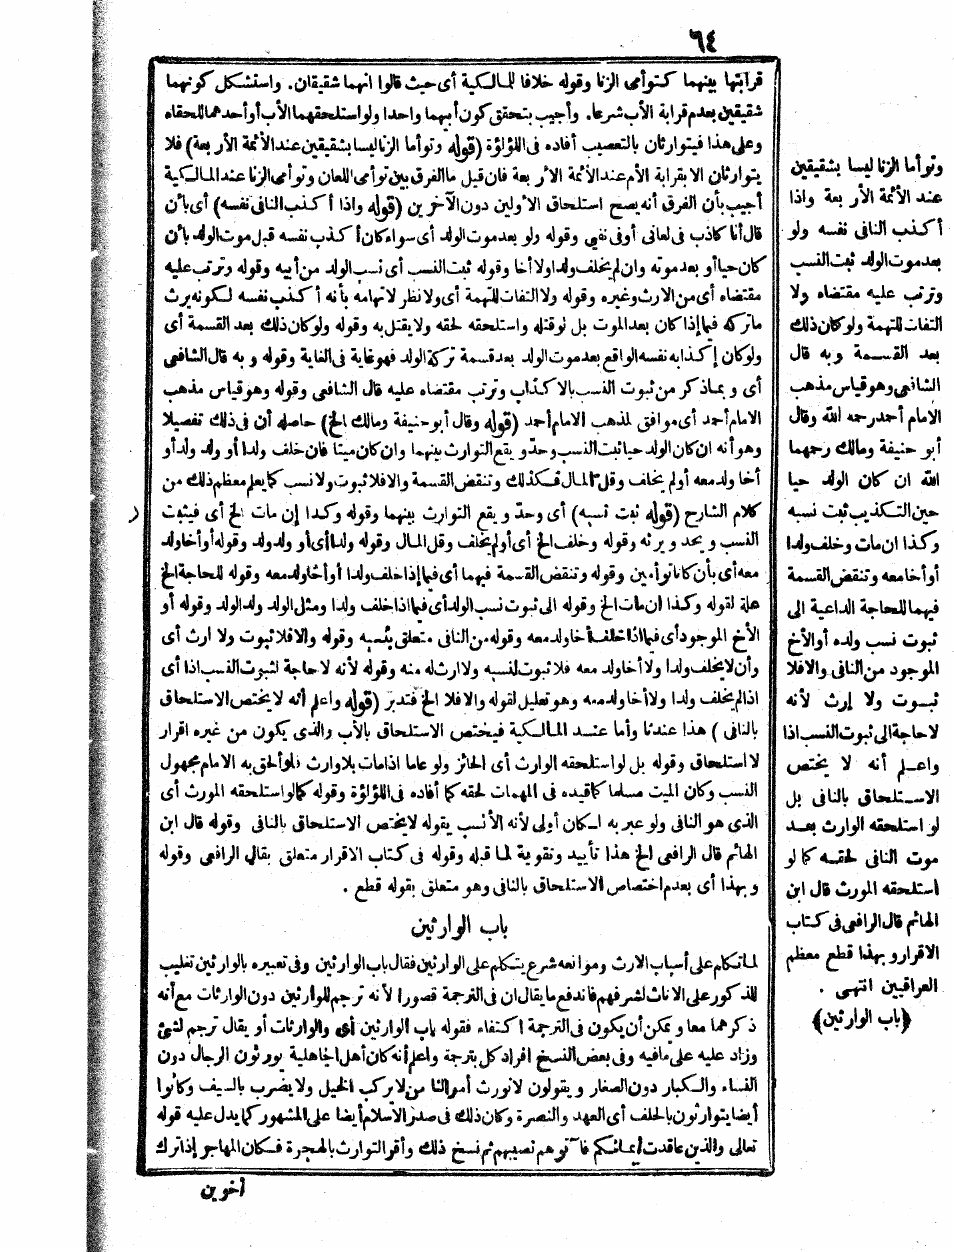 ٦٤
قرابتها بينهما كتوأمى الزنا وقوله خلافا للمالكية أى حيث قالوا انهما شقيقان. واستشكل كونهما
شقيقين بعدم قرابة الأب شرعا. وأجيب بتحقق كون أبيهما واحدا ولو استلحقهما الأب أو أحدهما للحقاه
وعلى هذا فيتوارثان بالتعصيب أفاده فى اللؤلؤة (قوله وتوأما الزنا ليسا بشقيقين عند الأئمة الأربعة) فلا
يتوارثان الا بقرابة الأم عند الأئمة الأربعة فان قيل ما الفرق بين توأمى اللعان وتوأمى الزنا عند المالكية
أجيب بأن الفرق أنه يصح استلحاق الأولين دون الآخرين (قوله واذا أكذب النافى نفسه) أى بأن
قال أنا كاذب فى لعانى أو فى نفيى وقوله ولو بعد موت الولد أى سواء كان أكذب نفسه قبل موت الولد بأن
كان حيا أو بعد موته وان لم يخلف ولدا ولا أخا وقوله ثبت النسب أى نسب الولد من أبيه وقوله وترتب عليه
مقتضاه أى من الارث وغيره وقوله ولا التفات للتهمة أى ولا نظر لاتهامه بأنه أكذب نفسه لكونه يرث
ما تركه فيما إذا كان بعد الموت بل لو قتله واستلحقه لحقه ولا يقتل به وقوله ولو كان ذلك بعد القسمة أى
ولو كان إكذابه نفسه الواقع بعد موت الولد بعد قسمة تركة الولد فهو غاية فى الغاية وقوله وبه قال الشافى
أى وبما ذكر من ثبوت النسب بالاكذاب وترتب مقتضاه عليه قال الشافى وقوله وهو قياس مذهب
الامام أحمد أى موافق لمذهب الامام أحمد (قوله وقال أبو حنيفة ومالك الخ) حاصله أن فى ذلك تفصيلا
وهو أنه ان كان الولد حيا ثبت النسب وحد ويقع التوارث بينهما وان كان ميتا فان خلف ولدا أو ولد ولد أو
أخا ولد معه أو لم يخلف وقل المال فكذلك وتنقض القسمة والا فلا ثبوت ولا نسب كما يعلم معظم ذلك من
كلام الشارح (قوله ثبت نسبه) أى وحد ويقع التوارث بينهما وقوله وكذا إن مات الخ أى فيثبت
النسب ويحد ويرثه وقوله وخلف الخ أى أو لم يخلف وقل المال وقوله ولدا أى أو ولد ولد وقوله أو أخا ولد
معه أى بأن كانا توأمين وقوله وتنقض القسمة فيهما أى فيما إذا خلف ولدا أو أخا ولد معه وقوله للحاجة الخ
علة لقوله وكذا ان مات الخ وقوله الى ثبوت نسب الولد أى فيما اذا خلف ولدا ومثل الولد ولد الولد وقوله أو
الأخ الموجود أى فيما اذا خلف أخا ولد معه وقوله من النافى متعلق بنسبه وقوله والا فلا ثبوت ولا ارث أى
وأن لا يخلف ولدا ولا أخا ولد معه فلا ثبوت لنسبه ولا ارث له منه وقوله لأنه لا حاجة لثبوت النسب اذا أى
اذا لم يخلف ولدا ولا أخا ولد معه وهو تعليل لقوله والا فلا الخ فتدبر (قوله واعلم أنه لا يختص الاستلحاق
بالنافى) هذا عندنا وأما عند المالكية فيختص الاستلحاق بالأب والذى يكون من غيره اقرار
لا استلحاق وقوله بل لو استلحقه الوارث أى الحائز ولو عاما اذا مات بلا وارث فلو ألحق به الامام مجهول
النسب وكان الميت مسلما كما قيده فى المهمات لحقه كما أفاده فى اللؤلؤة وقوله كما لو استلحقه المورث أى
الذى هو النافى ولو عبر به لكان أولى لأنه الأنسب بقوله لا يختص الاستلحاق بالنافى وقوله قال ابن
الهائم قال الرافعى الخ هذا تأييد وتقوية لما قبله وقوله فى كتاب الاقرار متعلق بقال الرافعى وقوله
وبهذا أى بعدم اختصاص الاستلحاق بالنافى وهو متعلق بقوله قطع .
باب الوارثين
لما تكلم على أسباب الارث وموانعه شرع يتكلم على الوارثين فقال باب الوارثين وفى تعبيره بالوارثين تغليب
للذكور على الاناث لشرفهم فاندفع ما يقال ان فى الترجمة قصورا لأنه ترجم للوارثين دون الوارثات مع أنه
ذكرهما معا ويمكن أن يكون فى الترجمة اكتفاء فقوله باب الوارثين أى والوارثات أو يقال ترجم لشئ
وزاد عليه على ما فيه وفى بعض النسخ افراد كل بترجمة واعلم أنه كان أهل الجاهلية يورثون الرجال دون
النساء والكبار دون الصغار ويقولون لا نورث أموالنا من لا يركب الخيل ولا يضرب بالسيف وكانوا
أيضا يتوارثون بالحلف أى العهد والنصرة وكان ذلك فى صدر الاسلام أيضا على المشهور كما يدل عليه قوله
تعالى والذين عاقدت أيمانكم فآتوهم نصيبهم ثم نسخ ذلك وأقر التوارث بالهجرة فكان المهاجر إذا ترك
أخوين
وتوأما الزنا ليسا بشقيقين
عند الأئمة الأربعة واذا
أكذب النافى نفسه ولو
بعد موت الولد ثبت النسب
وترتب عليه مقتضاه ولا
التفات للتهمة ولو كان ذلك
بعد القسمة وبه قال
الشافعى وهو قياس مذهب
الامام أحمد رحمه الله وقال
أبو حنيفة ومالك رحمهما
الله ان كان الولد حيا
حين التكذيب ثبت نسبه
وكذا ان مات وخلف ولدا
أو أخا معه وتنقض القسمة
فيهما للحاجة الداعية الى
ثبوت نسب ولده أو الأخ
الموجود من النافى والا فلا
ثبوت ولا إرث لأنه
لا حاجة الى ثبوت النسب اذا
واعلم أنه لا يختص
الاستلحاق بالنافى بل
لو استلحقه الوارث بعد
موت النافى لحقه كما لو
استلحقه المورث قال ابن
الهائم قال الرافعى فى كتاب
الاقرار وبهذا قطع معظم
العراقيين انتهى .
(باب الوارثين)